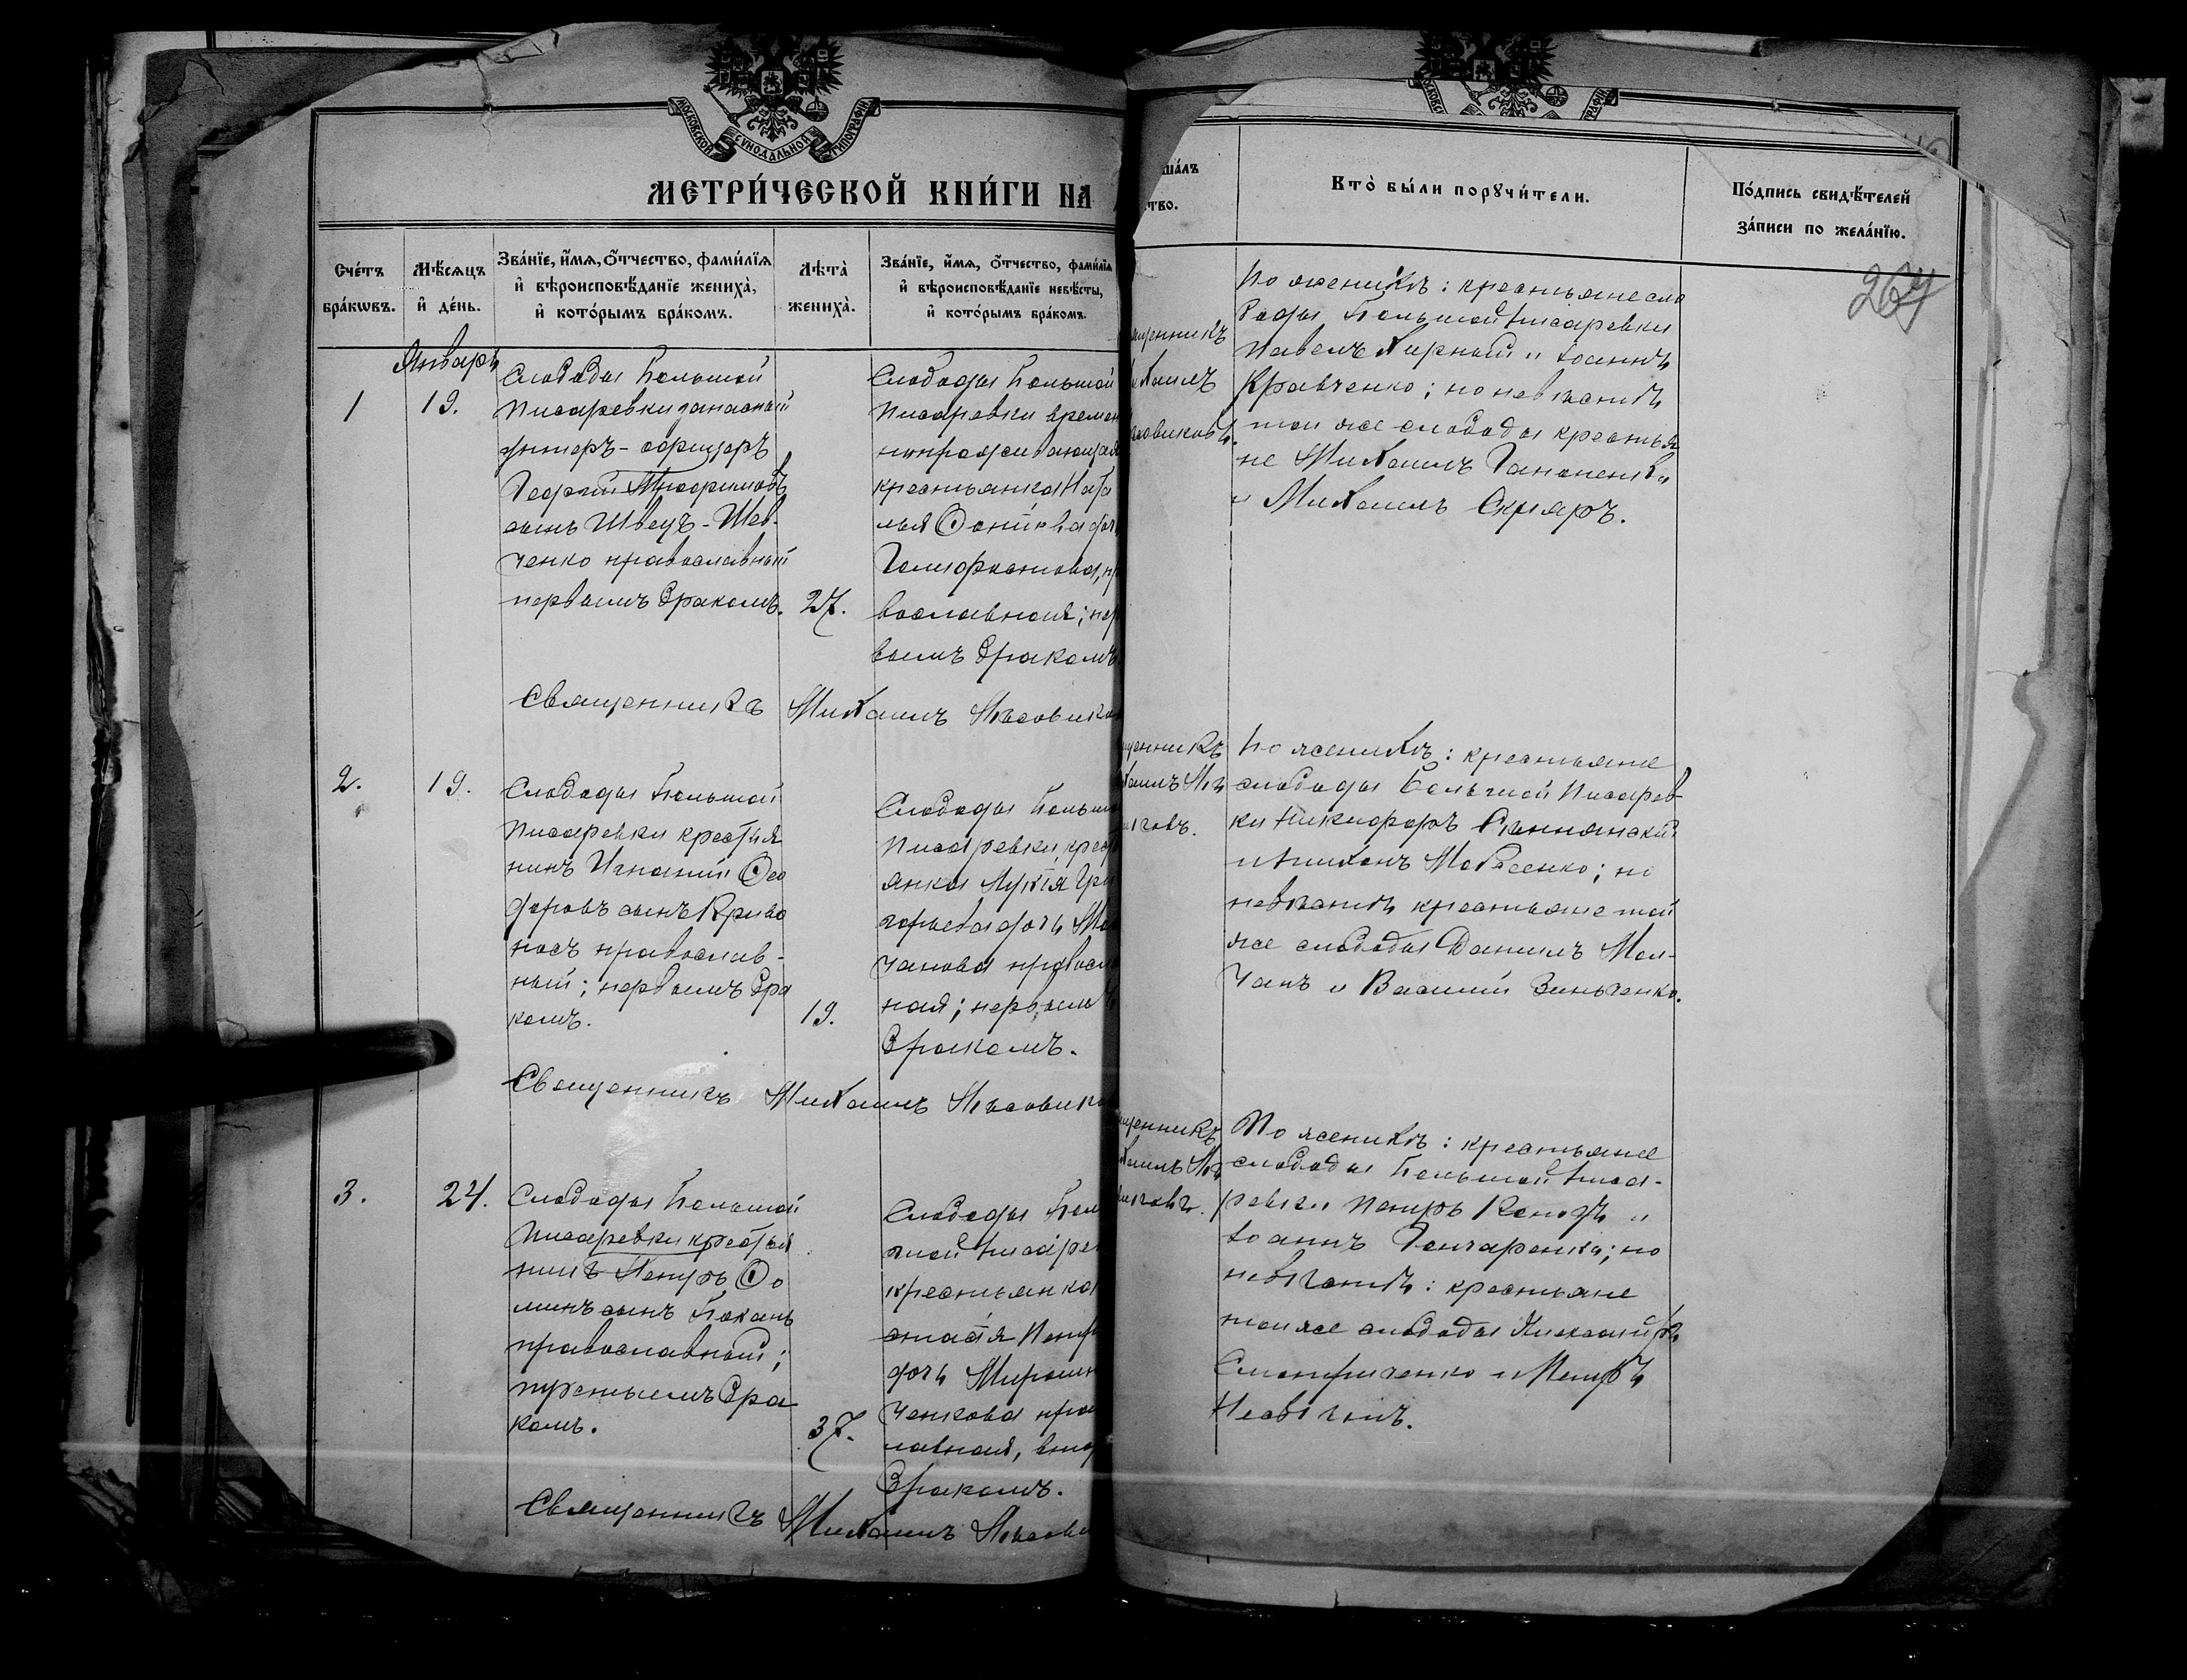 МОСКОВСКОЙ СѴНОДАЛЬНОЙ ТИПОГРАФІИ
МЕТРИ́ЧЕСКОЙ КНИ́ГИ НА
Сче́тъ бра́кѡвъ.
Мѣ́сѧцъ и҆ де́нь.
Зва́нїе, и҆́мѧ, ѻ҆́тчество, фами́лїѧ
и҆ вѣроисповѣ́данїе жениха̀,
и҆ кото́рымъ бра́комъ.
Лѣта̀ жениха̀.
Зва́нїе, и҆́мѧ, ѻ҆́тчество, фами́лїѧ
и҆ вѣроисповѣ́данїе невѣ́сты,
и҆ кото́рымъ бра́комъ.
Январь
1
19.
Слободы Большой
Писаревки запасный
унтеръ-офицеръ
Георгій
сынъ Швецъ-Шев-
ченко православный
первымъ бракомъ.
27.
Слободы Большой
Писаревки времен
но проживающая
крестьянка Ната
лья дочь
вославная; пер
вымъ бракомъ
Священникъ Михаилъ
2.
19.
Слободы Большой
Писаревки крестья
нинъ Игнатій Ѳео
доровъ сынъ Криво
носъ православ-
ный; первымъ бра
комъ.
19.
Слободы Больш
Писаревки крест
янка Лукія Гри
горьева дочь Мол
чанова правосл
ная; первымъ
бракомъ.
Священникъ Михаилъ
3.
24.
Слободы Большой
Писаревки крестья
нинъ Петръ Ѳо
минъ сынъ
православный;
третьимъ бра
комъ.
37.
Слободы Боль
шой Писарев
крестьянка
стасія Петр
дочь Мирошн
ченкова прав
лавная, втор
бракомъ.
Священникъ Михаилъ
ша́лъ
ство.
Кто̀ бы́ли порꙋчи́тели.
По́дпись свидѣ́телей
за́писи по жела́нїю.
267
щенникъ
хаилъ
По женихѣ: крестьяне сло
боды Большой Писаревки
Павелъ Жирный и Іоаннъ
Кравченко; по невѣстѣ
той же слободы крестья
не Михаилъ Гапоненко
и Михаилъ Скляръ.
щенникъ
По женихѣ: крестьяне
слободы Большой Писарев-
ки Никифоръ
и; по
невѣстѣ крестьяне той
же слободы Даніилъ Мол-
чанъ и Василій Зинченко.
щенникъ
По женихѣ: крестьяне
слободы Большой Писа-
ревки Петръ и
Іоаннъ Гончаренко; по
невѣстѣ: крестьяне
той же слободы
и Петръ